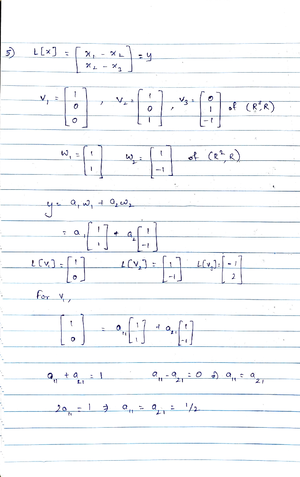 5) L[x] = [x₁ - x₂; x₂ - x₃] = y
V₁ = [1; 0; 0], V₂ = [1; 0; 1], V₃ = [0; 1; -1] of (R³, R)
W₁ = [1; 1] W₂ = [1; -1] of (R², R)
y = a₁w₁ + a₂w₂
= a₁[1; 1] + a₂[1; -1]
L[V₁] = [1; 0] L[V₂] = [1; -1] L[V₃] = [-1; 2]
For V₁,
[1; 0] = a₁₁[1; 1] + a₂₁[1; -1]
a₁₁ + a₂₁ = 1 a₁₁ - a₂₁ = 0 ⇒ a₁₁ = a₂₁
2a₁₁ = 1 ⇒ a₁₁ = a₂₁ = 1/2